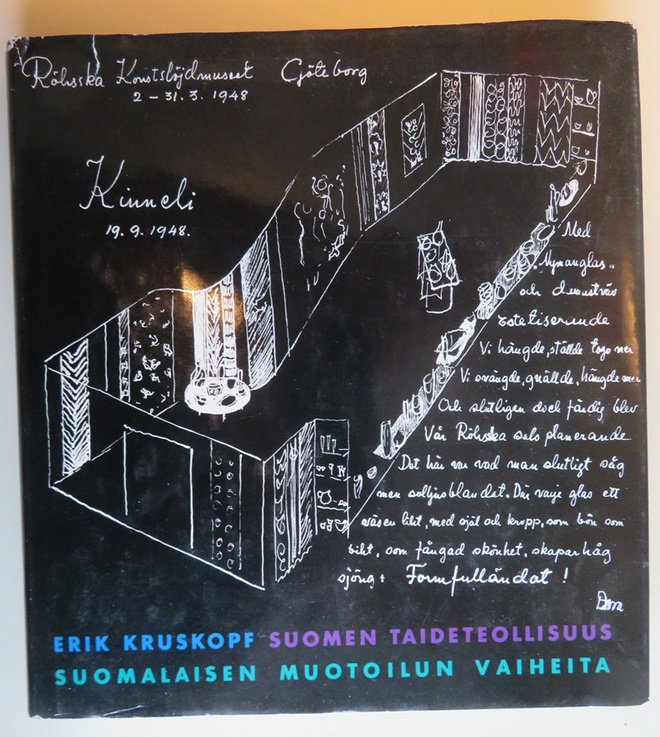 Röhsska Konstslöjdmuseet Göteborg
2 – 31.3. 1948
Kinneli
19.9. 1948.
Med
"Nymanglas"
och dunstväv
esteliserande
Vi hängde, ställde togo ner
Vi svängde, gnällde, hängde mer
Och slutligen dock färdig blev
Vår Röhsska sals planerande
Det här var vad man slutligt såg
men solljusblandet. Där varje glas ett
väsen likt, med själ och kropp, som bön som
dikt, som fångad skönhet, skaparhåg
sjöng: Formfulländat!
Dora
ERIK KRUSKOPF SUOMEN TAIDETEOLLISUUS
SUOMALAISEN MUOTOILUN VAIHEITA